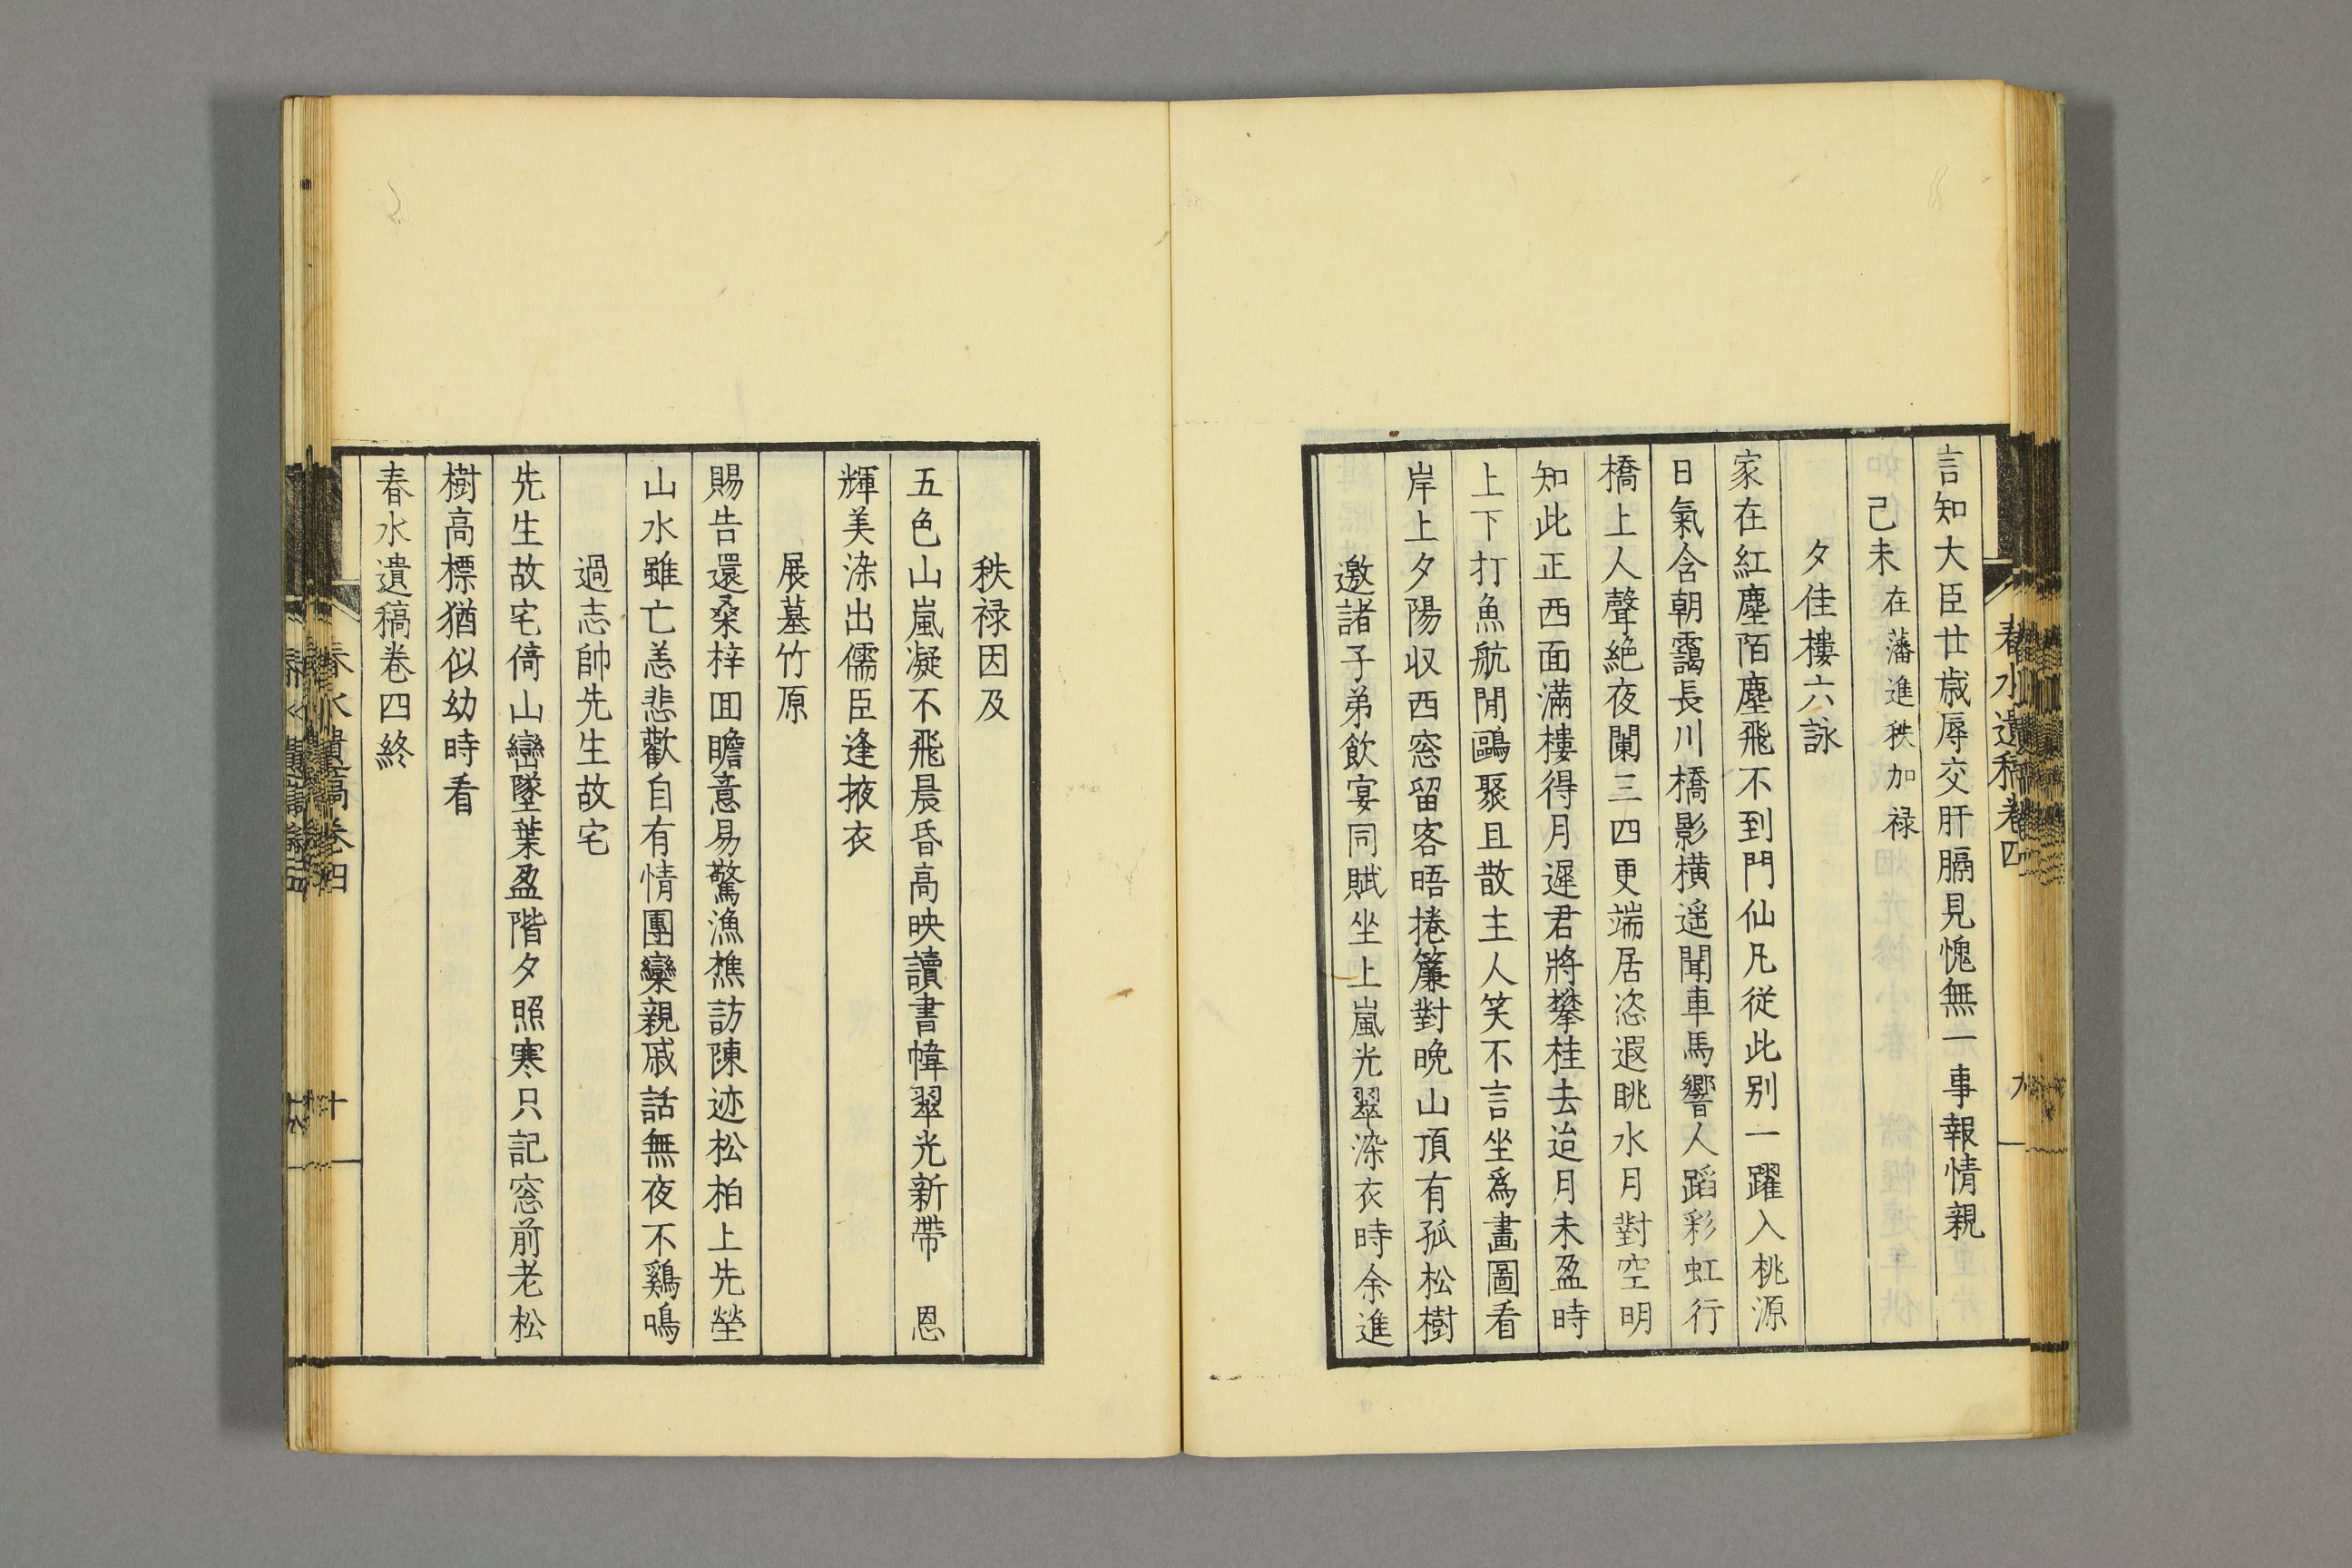 言知大臣廿歳辱交肝膈見愧無一事報情親
己未 在藩進秩加禄
夕佳樓六詠
家在紅塵陌塵飛不到門仙凡從此別一躍入桃源
日氣含朝靄長川橋影横遥聞車馬響人蹈彩虹行
橋上人聲絶夜闌三四更端居恣遐眺水月對空明
知此正西面滿樓得月遲君將攀桂去迨月未盈時
上下打魚航閒鷗聚且散主人笑不言坐爲畫圖看
岸上夕陽収西窓留客晤捲簾對晩山頂有孤松樹
邀諸子弟飲宴同賦坐上嵐光翠染衣時余進
秩禄因及
五色山嵐凝不飛晨昏高映讀書幃翠光新帶 恩
輝美染出儒臣逢掖衣
展墓竹原
賜告還桑梓囬瞻意易驚漁樵訪陳迹松柏上先塋
山水雖亡恙悲歡自有情團欒親戚話無夜不鷄鳴
過志帥先生故宅
先生故宅倚山巒墜葉盈階夕照寒只記窓前老松
樹高標猶似幼時看
春水遺稿卷四終
春水遺稿卷四
十
春水遺稿卷四
九